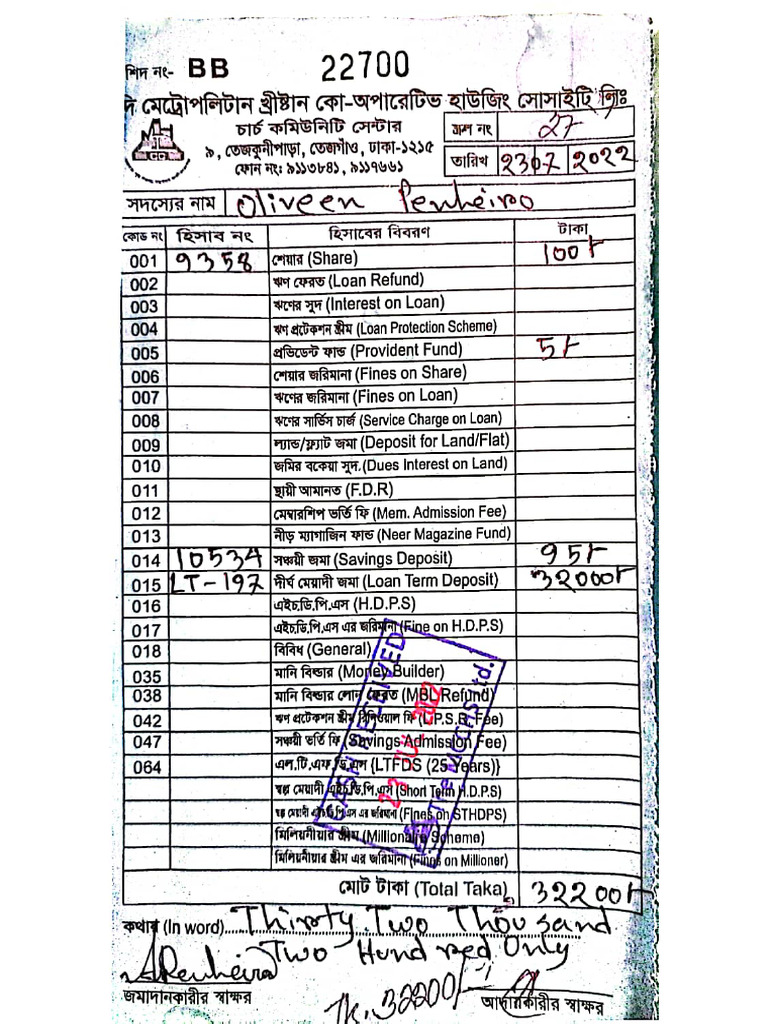 শিদ নং- BB 22700
দি মেট্রোপলিটান খ্রীষ্টান কো-অপারেটিভ হাউজিং সোসাইটি লিঃ
চার্চ কমিউনিটি সেন্টার
৯, তেজকুনীপাড়া, তেজগাঁও, ঢাকা-১২১৫
ফোন নং: ৯১১৩৮৪১, ৯১১৭৬৬১
দল নং 27
তারিখ 23 07 2022
সদস্যের নাম Oliveen Penheiro
কোড নং হিসাব নং হিসাবের বিবরণ টাকা
001 9358 শেয়ার (Share) 100/-
002 ঋণ ফেরত (Loan Refund)
003 ঋণের সুদ (Interest on Loan)
004 ঋণ প্রটেকশন স্কীম (Loan Protection Scheme)
005 প্রভিডেন্ট ফান্ড (Provident Fund) 5/-
006 শেয়ার জরিমানা (Fines on Share)
007 ঋণের জরিমানা (Fines on Loan)
008 ঋণের সার্ভিস চার্জ (Service Charge on Loan)
009 ল্যান্ড/ফ্ল্যাট জমা (Deposit for Land/Flat)
010 জমির বকেয়া সুদ (Dues Interest on Land)
011 স্থায়ী আমানত (F.D.R)
012 মেম্বারশিপ ভর্তি ফি (Mem. Admission Fee)
013 নীড় ম্যাগাজিন ফান্ড (Neer Magazine Fund)
014 10534 সঞ্চয়ী জমা (Savings Deposit) 95/-
015 LT-197 দীর্ঘ মেয়াদী জমা (Loan Term Deposit) 32000/-
016 এইচ.ডি.পি.এস (H.D.P.S)
017 এইচ.ডি.পি.এস এর জরিমানা (Fine on H.D.P.S)
018 বিবিধ (General)
035 মানি বিল্ডার (Money Builder)
038 মানি বিল্ডার লোন ফেরত (MBL Refund)
042 ঋণ প্রটেকশন স্কীম রিনিওয়াল ফি (L.P.S.R Fee)
047 সঞ্চয়ী ভর্তি ফি (Savings Admission Fee)
064 এল.টি.এফ.ডি.এস {LTFDS (25 Years)}
স্বল্প মেয়াদী এইচ.ডি.পি.এস (Short Term H.D.P.S)
স্বল্প মেয়াদী এইচ.ডি.পি.এস এর জরিমানা (Fines on STHDPS)
মিলিয়নীয়ার স্কীম (Millionaire Scheme)
মিলিয়নীয়ার স্কীম এর জরিমানা (Fines on Millioner)
CASH RECEIVED
23 JUL 2022
The MCCHS Ltd.
মোট টাকা (Total Taka) 32200/-
কথায় (In word) Thirty Two Thousand
Two Hundred Only
Penheiro
Tk. 32200/-
জমাদানকারীর স্বাক্ষর আদায়কারীর স্বাক্ষর